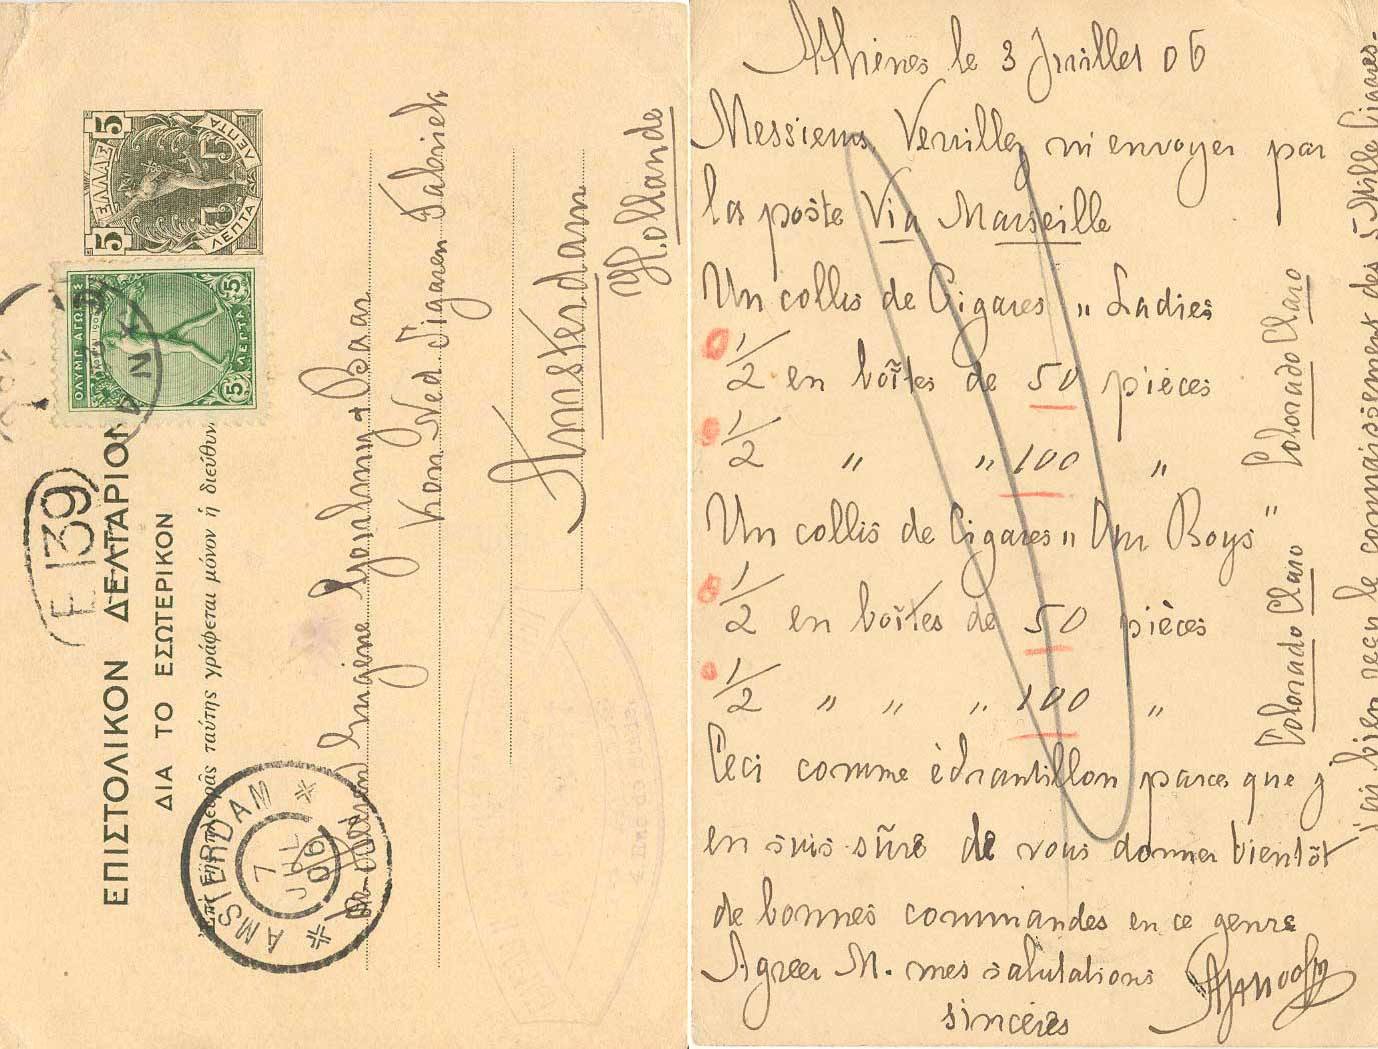 5 ΕΛΛΑΣ 5
ΛΕΠΤΑ 5 5 ΛΕΠΤΑ
ΟΛΥΜΠ. ΑΓΩΝΕΣ
5 ΛΕΠΤΑ 5
E 139
ΕΠΙΣΤΟΛΙΚΟΝ ΔΕΛΤΑΡΙΟΝ
ΔΙΑ ΤΟ ΕΣΩΤΕΡΙΚΟΝ
πλευρᾶς ταύτης γράφεται μόνον ἡ διεύθυν
AMSTERDAM
7 JUL 06
Eugène Goulmy & Baar
Kon Ned Sigaren Fabriek
Amsterdam
Hollande
Athènes le 3 Juillet 06
Messieurs, Veuillez m envoyer par
la poste Via Marseille
Un collis de Cigares „ Ladies
1/2 en boîtes de 50 pièces
1/2 „ „ 100 „
Colorado Claro
Un collis de Cigares „ Our Boys "
1/2 en boîtes de 50 pièces
1/2 „ „ „ 100 „
Colorado Claro
Ceci comme échantillon parce que j
en suis sûre de vous donner bientôt
de bonnes commandes en ce genre
Agreer M. mes salutations
sincères
J'ai bien reçu le connaissement des 5 Mille Cigares.